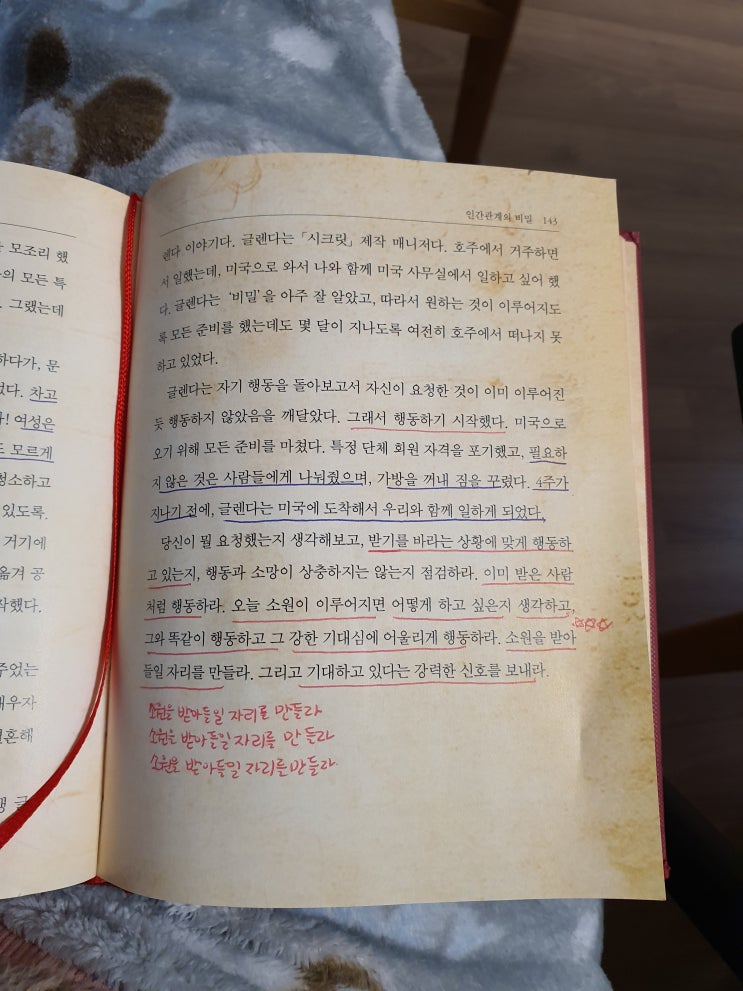 모조리 했
의 모든 특
그랬는데
하다가, 문
었다. 차고
! 여성은
도 모르게
청소하고
있도록.
거기에
옮겨 공
작했다.
주었는
배우자
결혼해
글
인간관계와 비밀 143
렌다 이야기다. 글렌다는 「시크릿」 제작 매니저다. 호주에서 거주하면
서 일했는데, 미국으로 와서 나와 함께 미국 사무실에서 일하고 싶어 했
다. 글렌다는 ‘비밀’을 아주 잘 알았고, 따라서 원하는 것이 이루어지도
록 모든 준비를 했는데도 몇 달이 지나도록 여전히 호주에서 떠나지 못
하고 있었다.
글렌다는 자기 행동을 돌아보고서 자신이 요청한 것이 이미 이루어진
듯 행동하지 않았음을 깨달았다. 그래서 행동하기 시작했다. 미국으로
오기 위해 모든 준비를 마쳤다. 특정 단체 회원 자격을 포기했고, 필요하
지 않은 것은 사람들에게 나눠줬으며, 가방을 꺼내 짐을 꾸렸다. 4주가
지나기 전에, 글렌다는 미국에 도착해서 우리와 함께 일하게 되었다.
당신이 뭘 요청했는지 생각해보고, 받기를 바라는 상황에 맞게 행동하
고 있는지, 행동과 소망이 상충하지는 않는지 점검하라. 이미 받은 사람
처럼 행동하라. 오늘 소원이 이루어지면 어떻게 하고 싶은지 생각하고,
그와 똑같이 행동하고 그 강한 기대심에 어울리게 행동하라. 소원을 받아
들일 자리를 만들라. 그리고 기대하고 있다는 강력한 신호를 보내라.
소원을 받아들일 자리를 만들라
소원을 받아들일 자리를 만들라
소원을 받아들일 자리를 만들라.